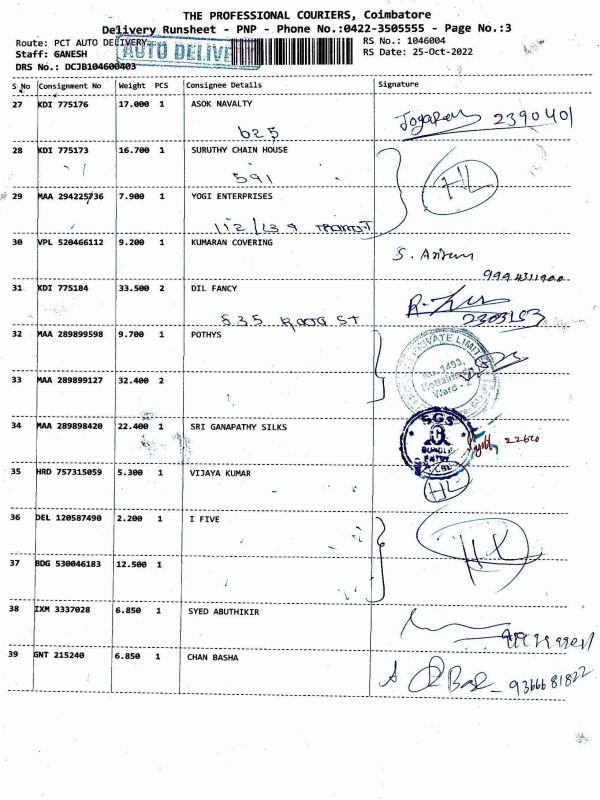 THE PROFESSIONAL COURIERS, Coimbatore
Delivery Runsheet - PNP - Phone No.:0422-3505555 - Page No.:3
Route: PCT AUTO DELIVERY
AUTO DELIVE
RS No.: 1046004
Staff: GANESH
RS Date: 25-Oct-2022
DRS No.: DCJB104600403
S No Consignment No Weight PCS Consignee Details Signature
27 KDI 775176 17.000 1 ASOK NAVALTY
2390401
625
28 KDI 775173 16.700 1 SURUTHY CHAIN HOUSE
HL
591
29 MAA 294225736 7.900 1 YOGI ENTERPRISES
30 VPL 520466112 9.200 1 KUMARAN COVERING
31 KDI 775184 33.500 2 DIL FANCY
535
32 MAA 289899598 9.700 1 POTHYS
PRIVATE LIMIT
33 MAA 289899127 32.400 2
34 MAA 289898420 22.400 1 SRI GANAPATHY SILKS
SGS
BUNDLE
ENTRY
35 HRD 757315059 5.300 1 VIJAYA KUMAR
HL
36 DEL 120587490 2.200 1 I FIVE
37 BDG 530046183 12.500 1
38 IXM 3337028 6.850 1 SYED ABUTHIKIR
39 GNT 215240 6.850 1 CHAN BASHA
9366681822